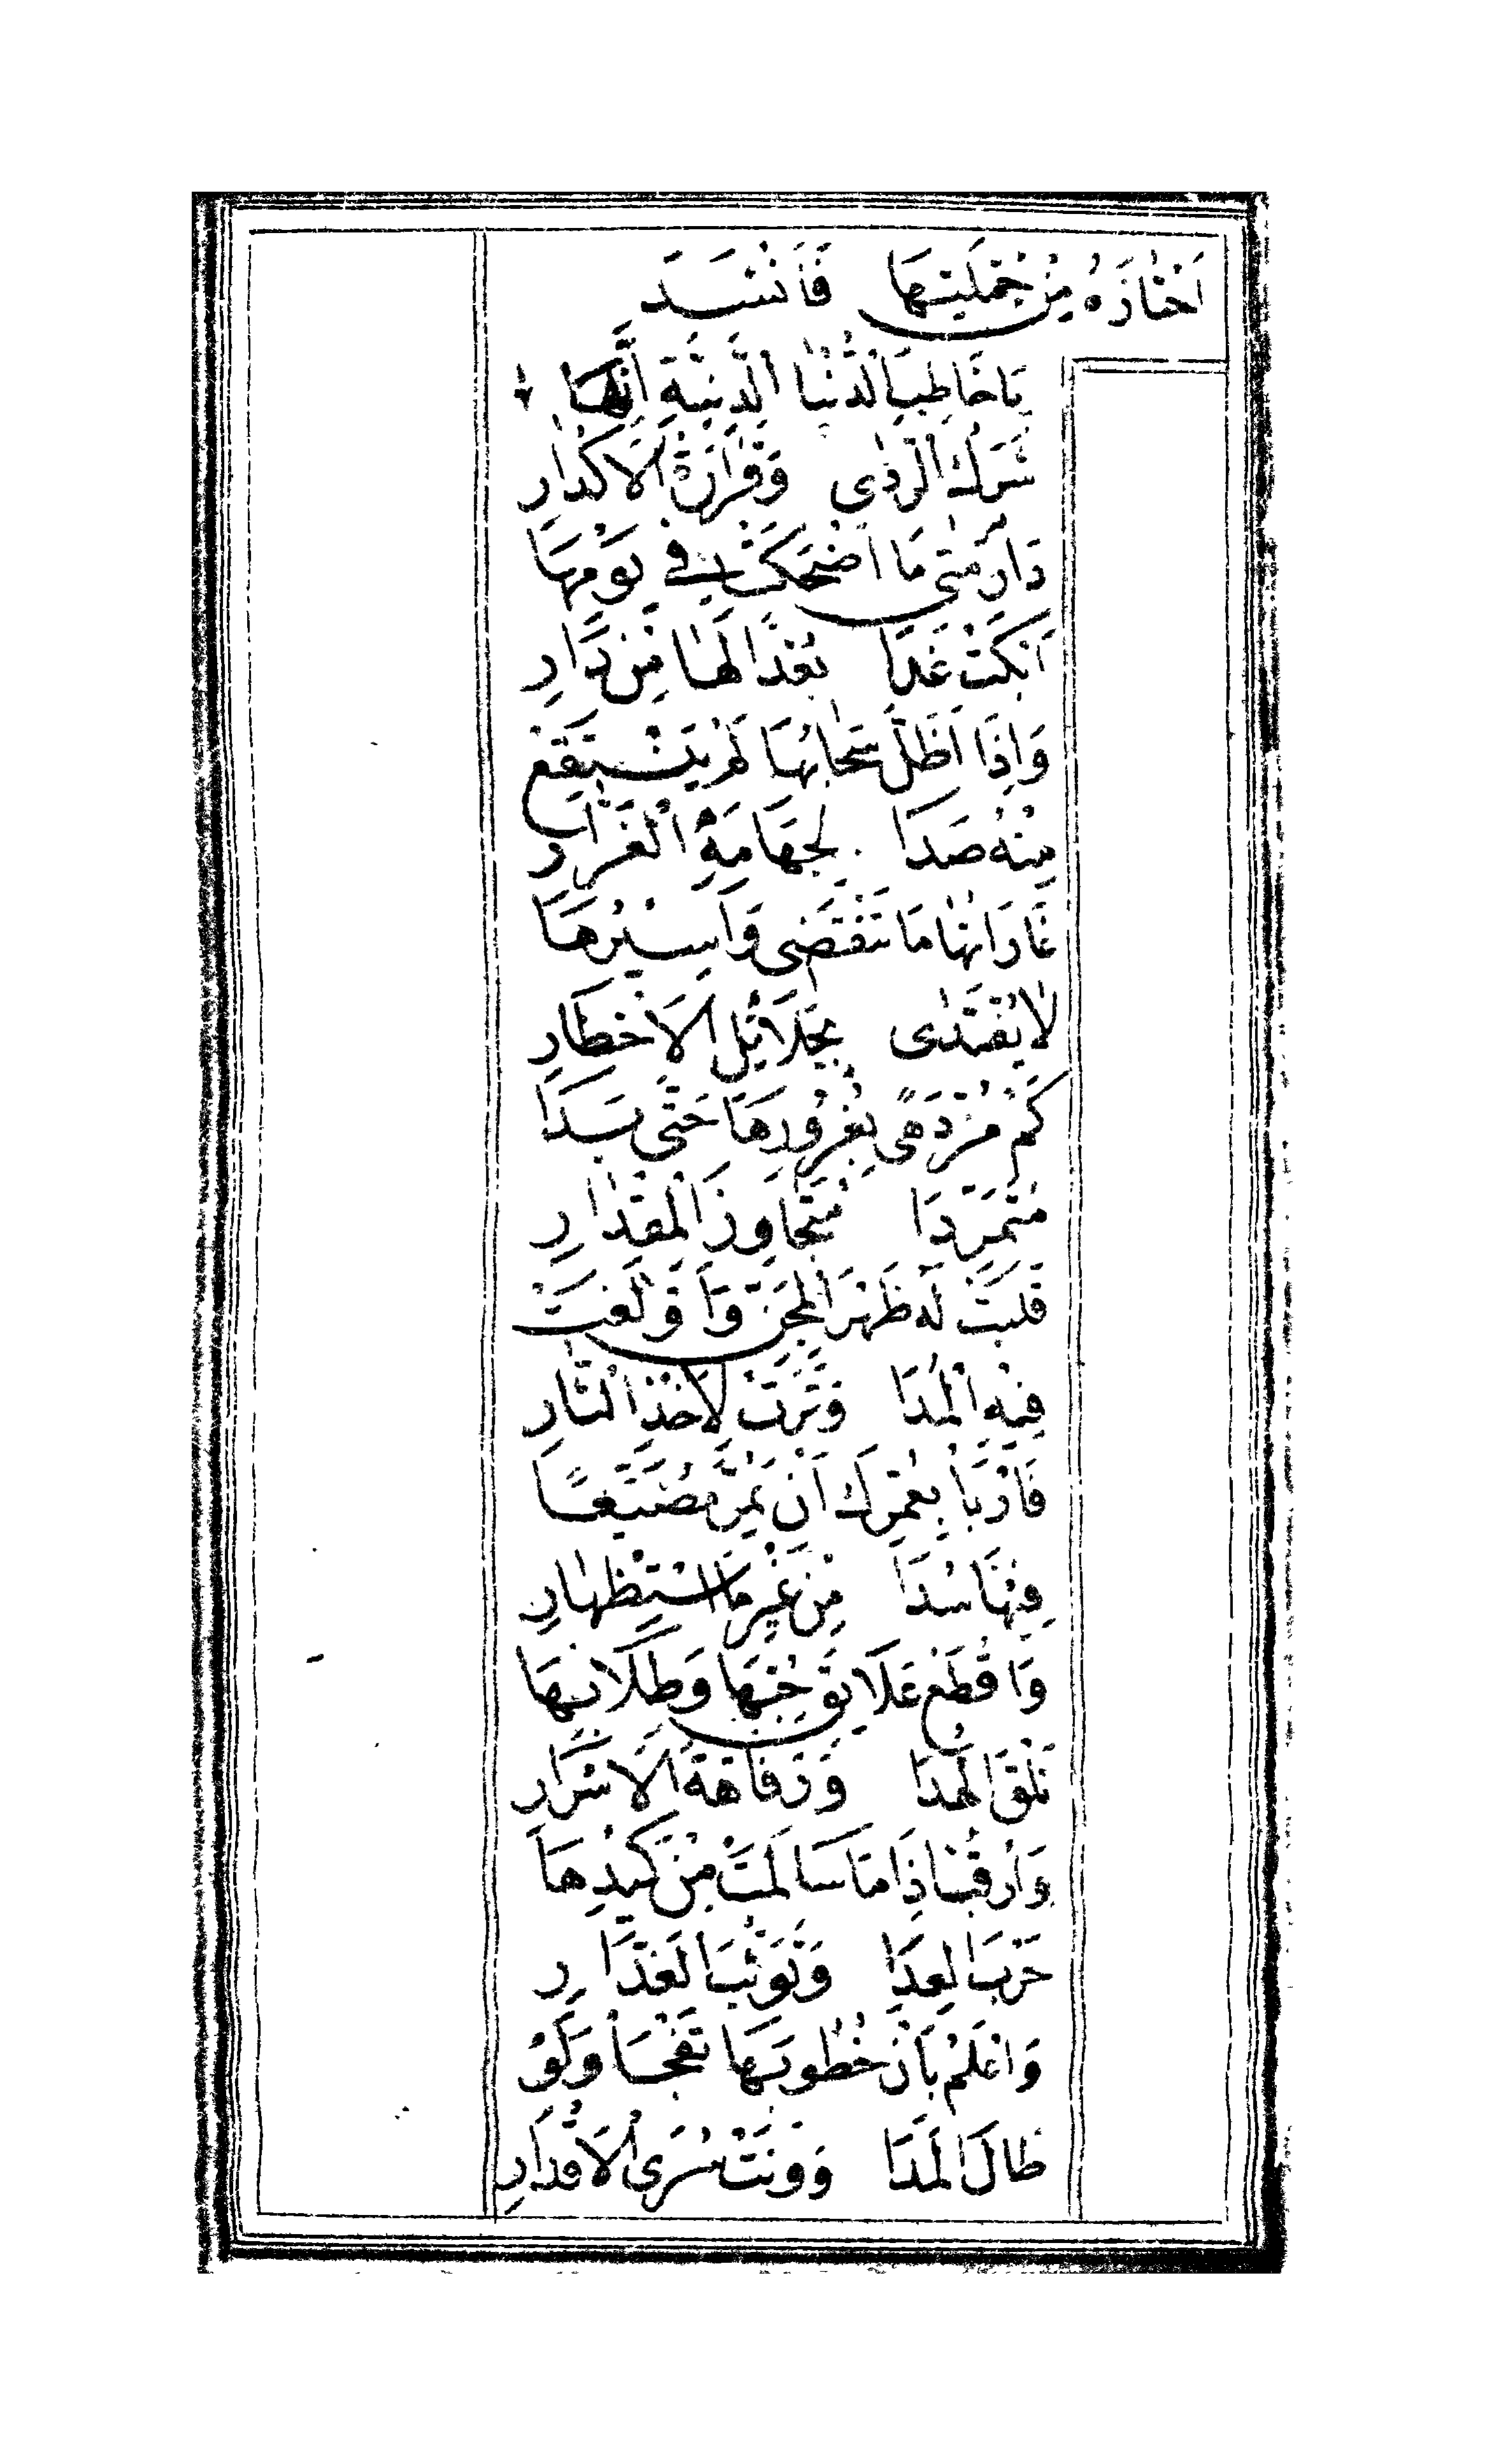 اَخْتَازَهُ مِنْ جُمْلَيتِهَا فَاَنْشَدَ
يَاخَاطِبَ الدُّنْيَا الدَّنِيَّةِ اَنَّهَا
شَرَكُ الرَّدٰى وَقَرَارَةُ الْاَكْدَارِ
دَارٌ مَتٰى مَا اَضْحَكَتْ فِي يَوْمِهَا
اَبْكَتْ غَدًا بُعْدًا لَهَا مِنْ دَارِ
وَاِذَا اَظَلَّ سَحَابُهَا لَمْ يَنْتَقِعْ
مِنْهُ صَدَا لِجَهَامَةِ الْغَرَّارِ
غَارَاتُهَا مَا تَنْقَضِى وَاَسِيْرُهَا
لَا يُفْتَدٰى بِجَلَائِلِ الْاَخْطَارِ
كَمْ مُزْدَهًى بِغُرُورِهَا حَتّٰى بَدَا
مُتَمَرِّدَا مُتَجَاوِزَ الْمِقْدَارِ
قَلَبَتْ لَهُ ظَهْرَ الْمِجَنِّ وَاَوْلَغَتْ
فِيْهِ الْمُدَا وَنَزَتْ لِاَخْذِ الثَّارِ
فَارْبَأْ بِعُمْرِكَ اَنْ يَمُرَّ مُضَيَّعًا
فِيْهَا سُدَا مِنْ غَيْرِ مَا اسْتِظْهَارِ
وَاقْطَعْ عَلَايِقَ حُبِّهَا وَطِلَابِهَا
تَلْقَ الْهُدَا وَرَفَاهَةَ الْاَسْرَارِ
وَارْقُبْ اِذَا مَا سَالَمَتْ مِنْ كَيْدِهَا
حَرْبَ الْعِدَا وَتَوَثُّبَ الْغَدَّارِ
وَاعْلَمْ بِاَنَّ خُطُوبَهَا تَفْجَأُ وَلَوْ
طَالَ الْمَدَا وَوَنَتْ سُرَى الْاَقْدَارِ